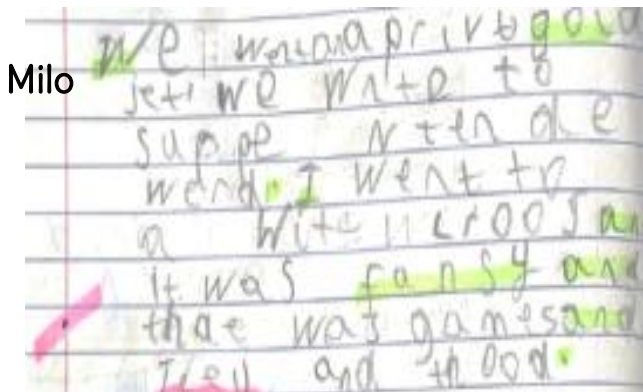 We went on a privt gold
Milo
jet! We Wnte to
suppe Nten de
werd. I went to
a Wite croos an
it was fansy and
thae was games and
and thood.